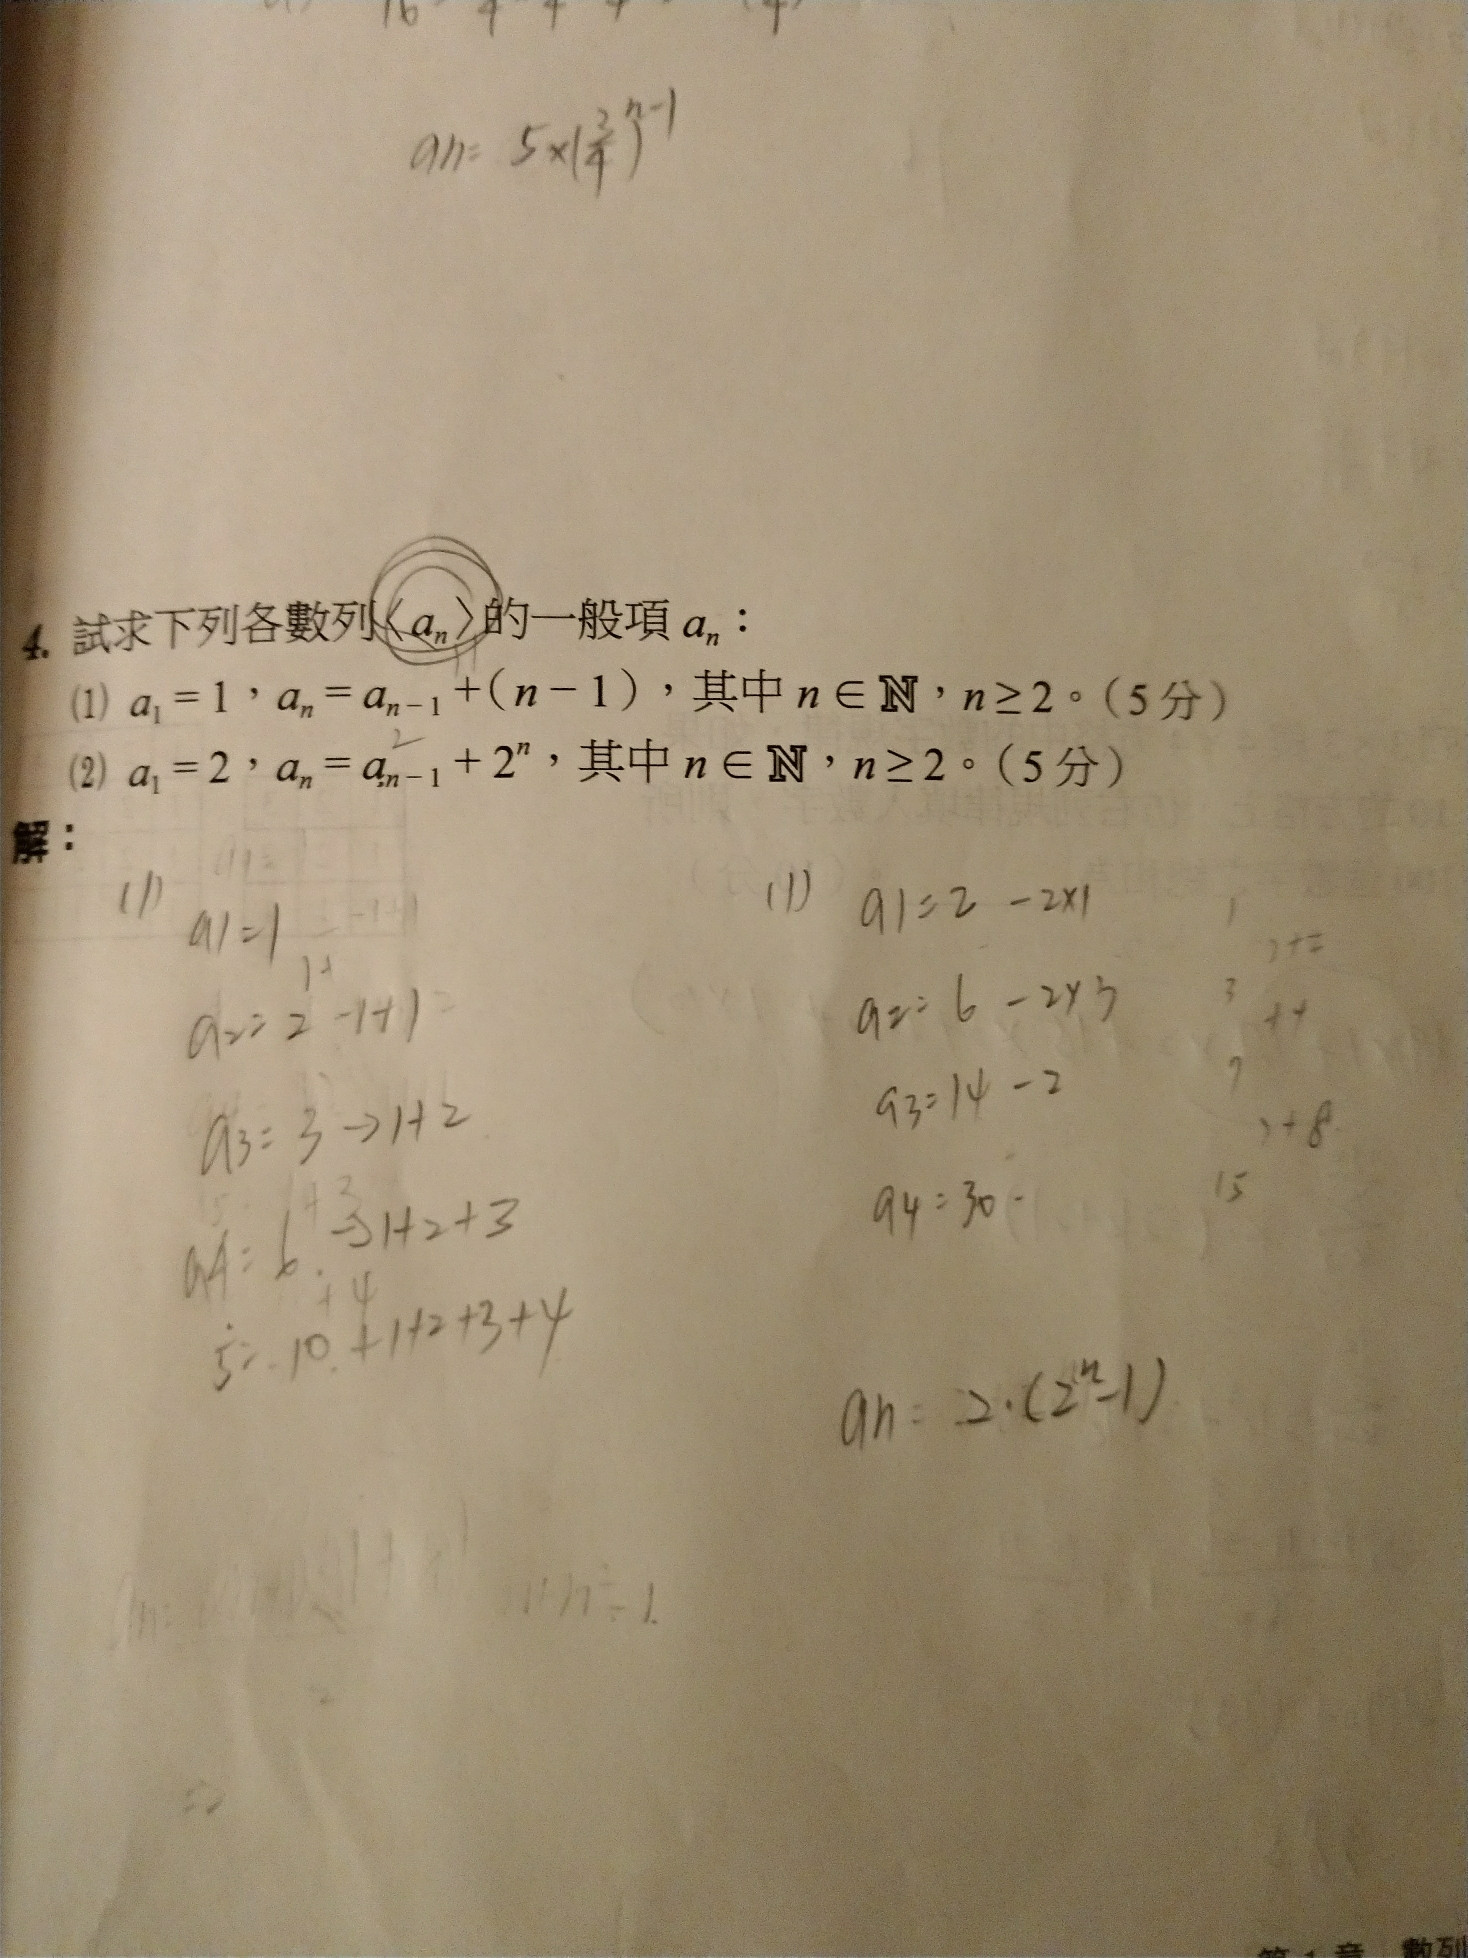 an= 5×(3/4)^n-1
4. 試求下列各數列〈aₙ〉的一般項 aₙ：
(1) a₁ = 1，aₙ = aₙ₋₁ + (n − 1)，其中 n ∈ ℕ，n ≥ 2。(5 分)
(2) a₁ = 2，aₙ = aₙ₋₁ + 2ⁿ，其中 n ∈ ℕ，n ≥ 2。(5 分)
解：
(1)
a1=1
a2=2 -1+1
a3=3→1+2
a4=6→1+2+3
5=10+1+2+3+4
(1) a1=2 -2×1
a2=6 -2×3
a3=14 -2
a4=30
1
3
+4
7
+8
15
an=2·(2ⁿ-1)